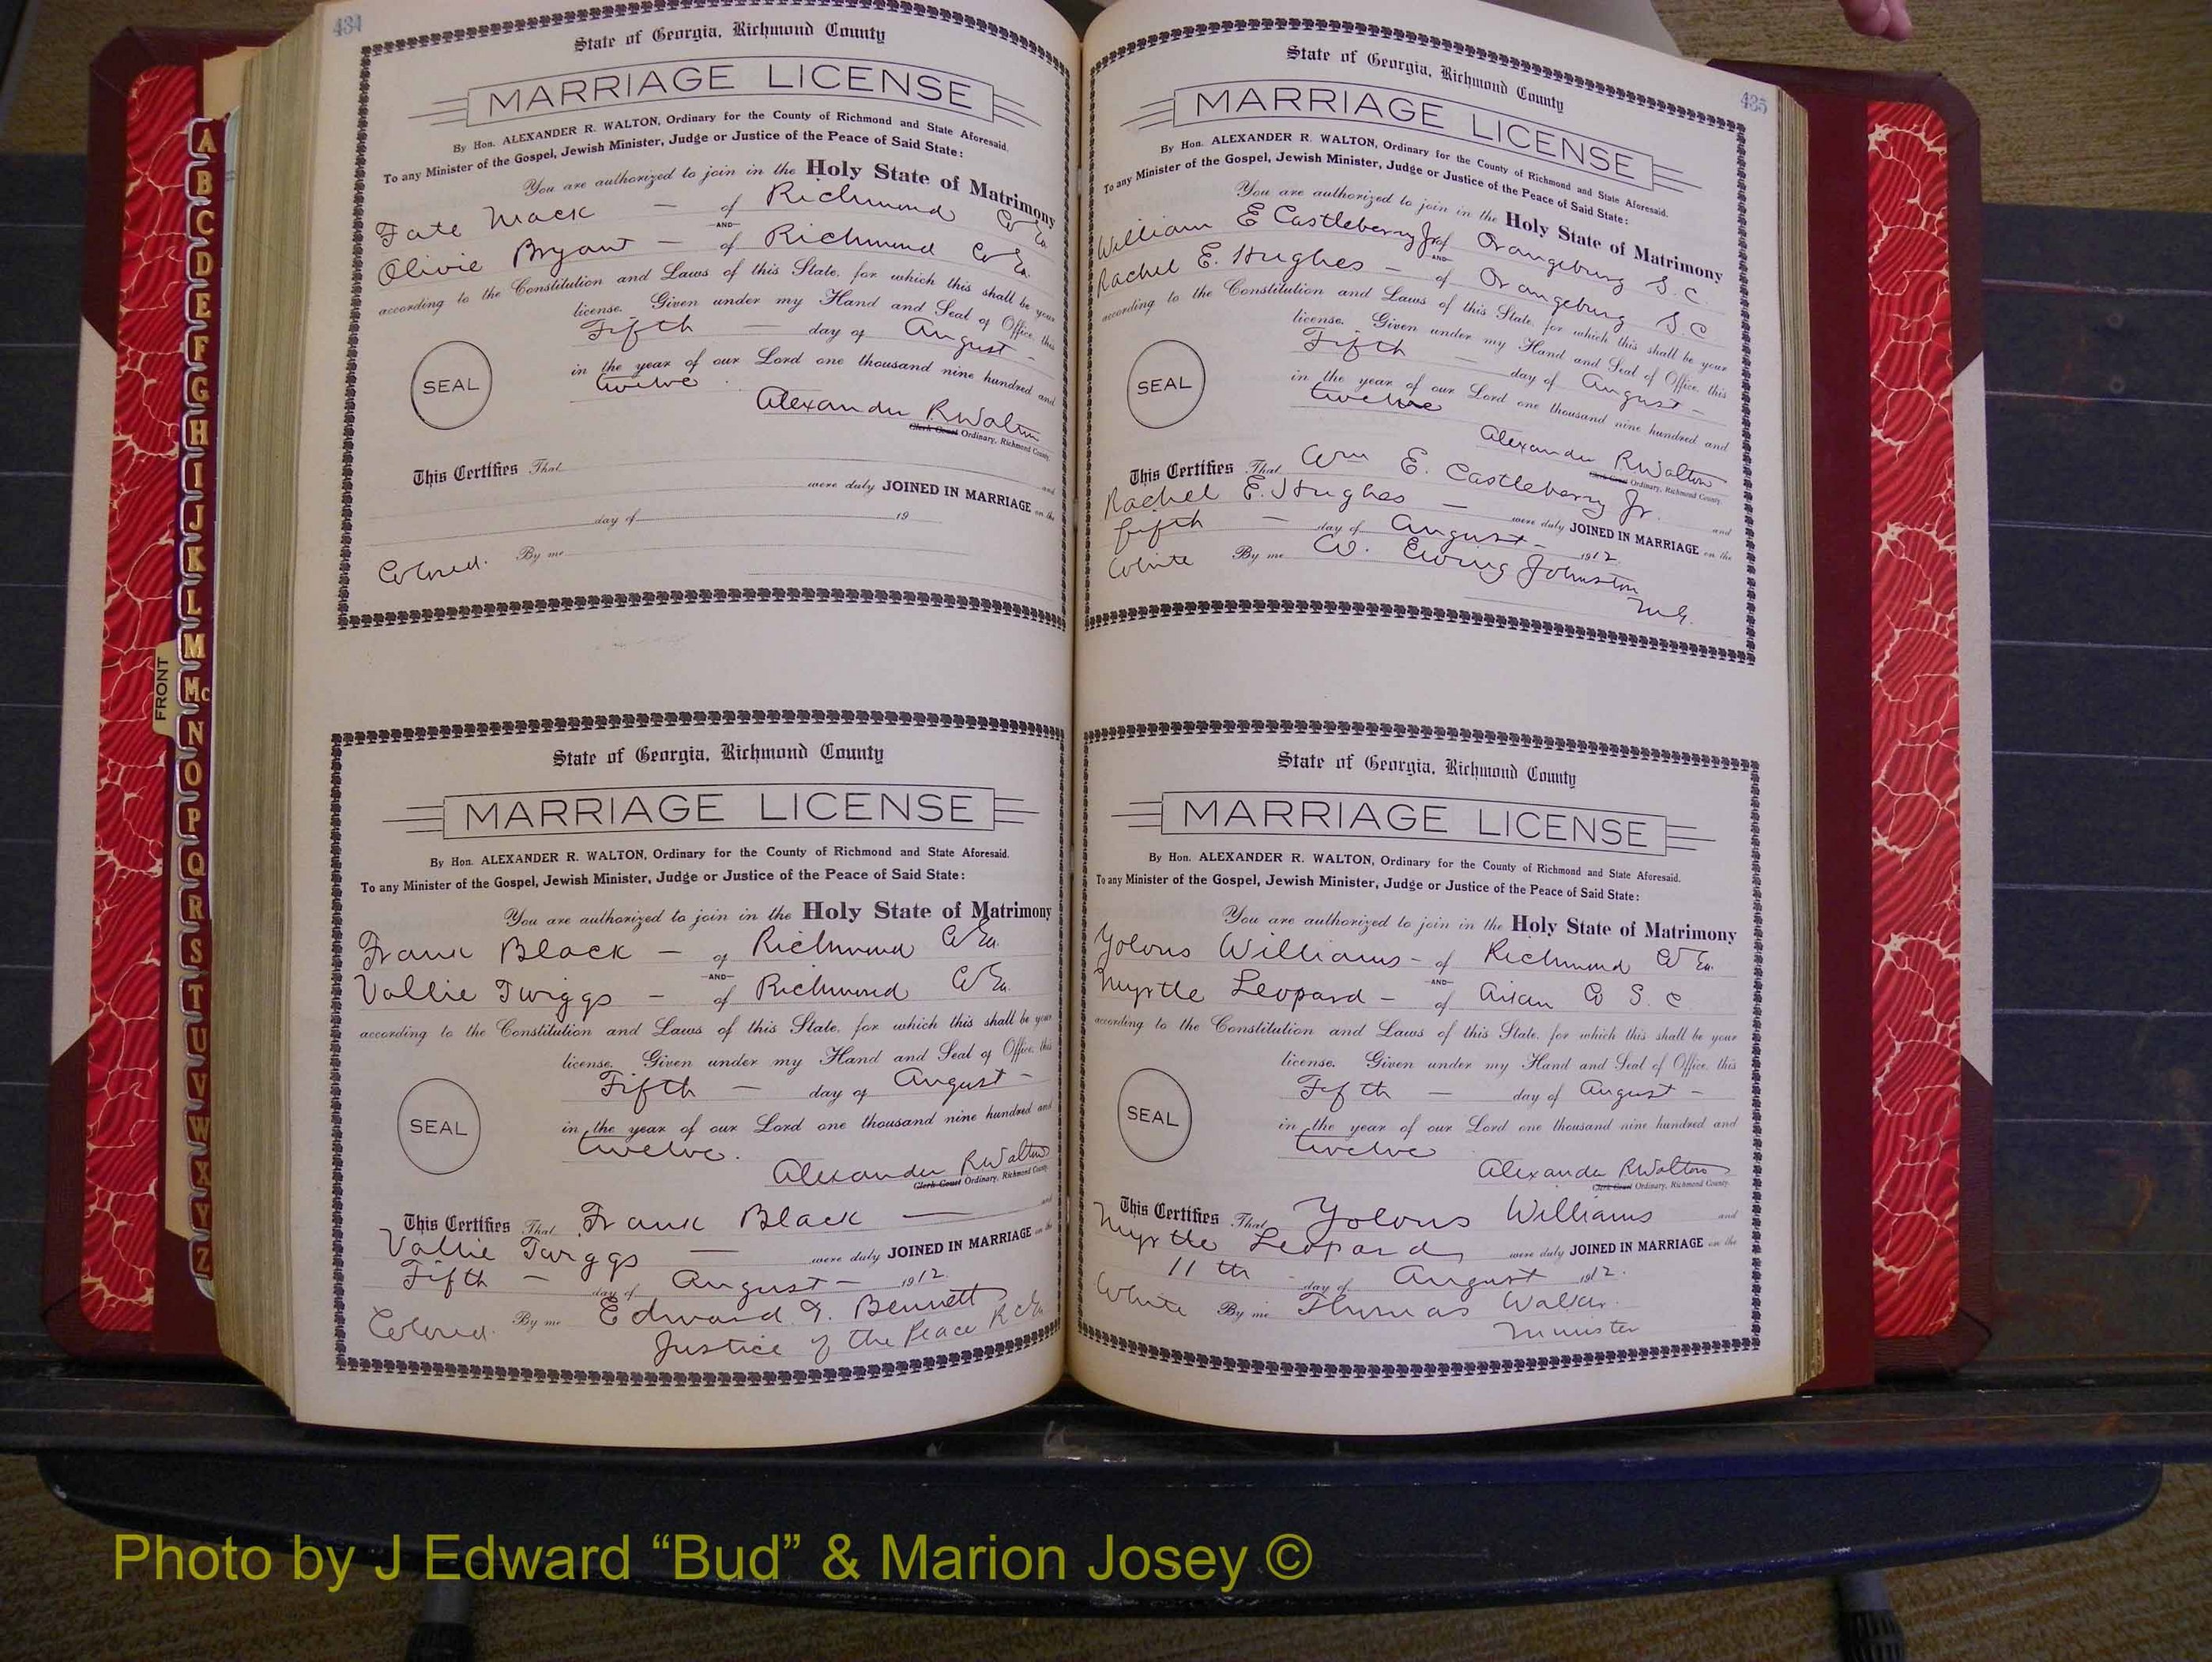 434
State of Georgia, Richmond County
MARRIAGE LICENSE
By Hon. ALEXANDER R. WALTON, Ordinary for the County of Richmond and State Aforesaid.
To any Minister of the Gospel, Jewish Minister, Judge or Justice of the Peace of Said State:
You are authorized to join in the Holy State of Matrimony
Fate Mack — of Richmond Co Ga.
AND
Olivie Bryant — of Richmond Co Ga.
according to the Constitution and Laws of this State, for which this shall be your
license. Given under my Hand and Seal of Office, this
Fifth — day of August —
in the year of our Lord one thousand nine hundred and
twelve
SEAL
Alexander R Walton
Clerk Court Ordinary, Richmond County
This Certifies That and
were duly JOINED IN MARRIAGE on the
day of 19
Colored. By me
State of Georgia, Richmond County
MARRIAGE LICENSE
By Hon. ALEXANDER R. WALTON, Ordinary for the County of Richmond and State Aforesaid.
To any Minister of the Gospel, Jewish Minister, Judge or Justice of the Peace of Said State:
You are authorized to join in the Holy State of Matrimony
Frank Black — of Richmond Co Ga.
AND
Vallie Twiggs — of Richmond Co Ga.
according to the Constitution and Laws of this State, for which this shall be your
license. Given under my Hand and Seal of Office, this
Fifth — day of August —
in the year of our Lord one thousand nine hundred and
twelve.
SEAL
Alexander R Walton
Clerk Court Ordinary, Richmond County.
This Certifies That Frank Black — and
Vallie Twiggs — were duly JOINED IN MARRIAGE on the
Fifth — day of August — 1912.
Colored. By me Edward G. Bennett
Justice of the Peace R C Ga
435
State of Georgia, Richmond County
MARRIAGE LICENSE
By Hon. ALEXANDER R. WALTON, Ordinary for the County of Richmond and State Aforesaid.
To any Minister of the Gospel, Jewish Minister, Judge or Justice of the Peace of Said State:
You are authorized to join in the Holy State of Matrimony
William E Castleberry Jr of Orangeburg S. C.
AND
Rachel E. Hughes — of Orangeburg S C
according to the Constitution and Laws of this State, for which this shall be your
license. Given under my Hand and Seal of Office, this
Fifth day of August —
in the year of our Lord one thousand nine hundred and
twelve
SEAL
Alexander R Walton
Clerk Court Ordinary, Richmond County
This Certifies That Wm E. Castleberry Jr. and
Rachel E. Hughes — were duly JOINED IN MARRIAGE on the
fifth — day of August — 1912
White By me W. Ewing Johnston
M.G.
State of Georgia, Richmond County
MARRIAGE LICENSE
By Hon. ALEXANDER R. WALTON, Ordinary for the County of Richmond and State Aforesaid.
To any Minister of the Gospel, Jewish Minister, Judge or Justice of the Peace of Said State:
You are authorized to join in the Holy State of Matrimony
Yolous Williams — of Richmond Co Ga.
AND
Myrtle Leopard — of Aiken Co S. C
according to the Constitution and Laws of this State, for which this shall be your
license. Given under my Hand and Seal of Office, this
Fifth — day of August —
in the year of our Lord one thousand nine hundred and
twelve
SEAL
Alexander R Walton
Clerk Court Ordinary, Richmond County.
This Certifies That Yolous Williams and
Myrtle Leopard were duly JOINED IN MARRIAGE on the
11 th day of August 1912.
White By me Thomas Walker.
Minister
A
B
C
D
E
F
G
H
I
J
K
L
M
Mc
N
O
P
Q
R
S
T
U
V
W
X
Y
Z
FRONT
Photo by J Edward “Bud” & Marion Josey ©